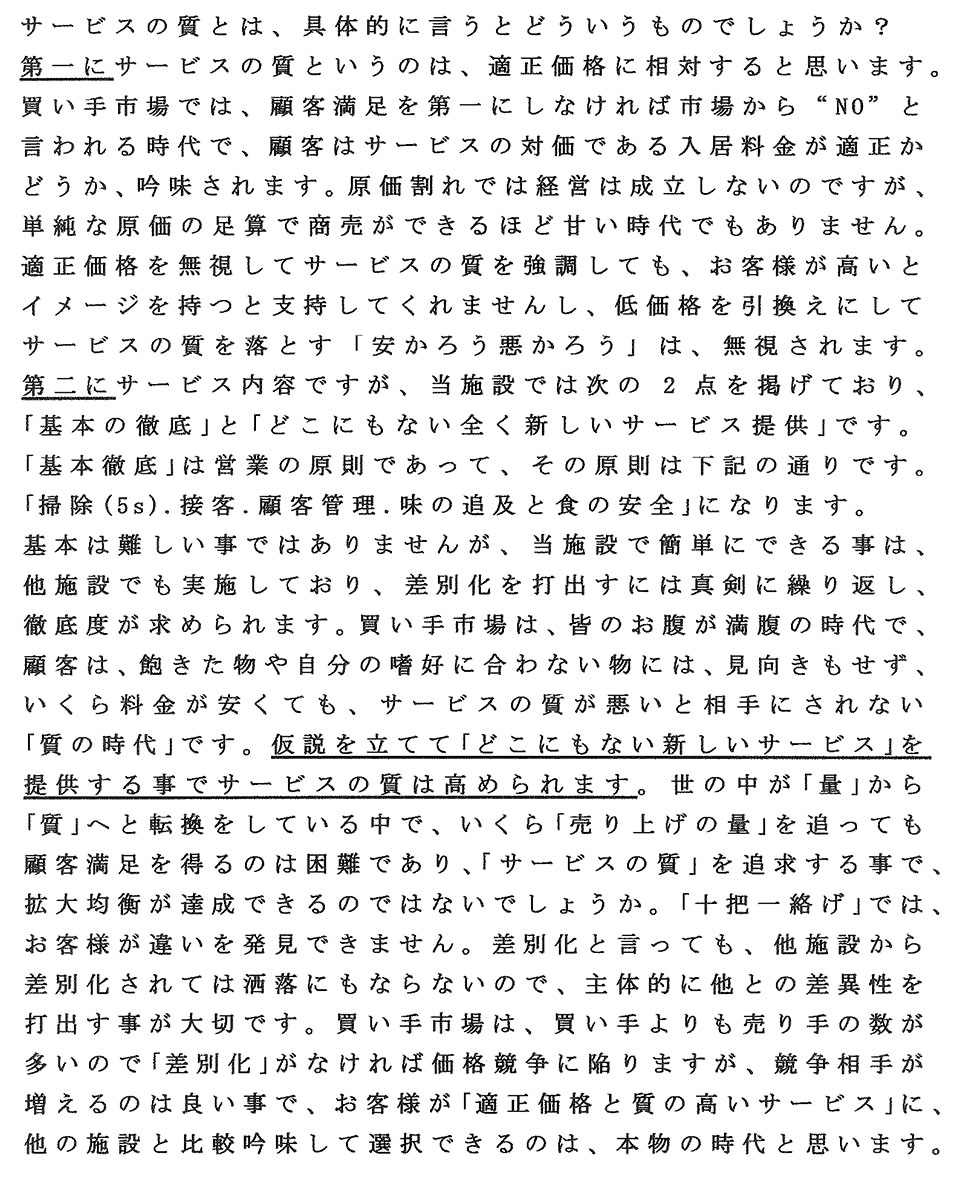 サービスの質とは、具体的に言うとどういうものでしょうか?
第一にサービスの質というのは、適正価格に相対すると思います。
買い手市場では、顧客満足を第一にしなければ市場から“NO”と
言われる時代で、顧客はサービスの対価である入居料金が適正か
どうか、吟味されます。原価割れでは経営は成立しないのですが、
単純な原価の足算で商売ができるほど甘い時代でもありません。
適正価格を無視してサービスの質を強調しても、お客様が高いと
イメージを持つと支持してくれませんし、低価格を引換えにして
サービスの質を落とす「安かろう悪かろう」は、無視されます。
第二にサービス内容ですが、当施設では次の 2 点を掲げており、
「基本の徹底」と「どこにもない全く新しいサービス提供」です。
「基本徹底」は営業の原則であって、その原則は下記の通りです。
「掃除(5s).接客.顧客管理.味の追及と食の安全」になります。
基本は難しい事ではありませんが、当施設で簡単にできる事は、
他施設でも実施しており、差別化を打出すには真剣に繰り返し、
徹底度が求められます。買い手市場は、皆のお腹が満腹の時代で、
顧客は、飽きた物や自分の嗜好に合わない物には、見向きもせず、
いくら料金が安くても、サービスの質が悪いと相手にされない
「質の時代」です。仮説を立てて「どこにもない新しいサービス」を
提供する事でサービスの質は高められます。世の中が「量」から
「質」へと転換をしている中で、いくら「売り上げの量」を追っても
顧客満足を得るのは困難であり、「サービスの質」を追求する事で、
拡大均衡が達成できるのではないでしょうか。「十把一絡げ」では、
お客様が違いを発見できません。差別化と言っても、他施設から
差別化されては洒落にもならないので、主体的に他との差異性を
打出す事が大切です。買い手市場は、買い手よりも売り手の数が
多いので「差別化」がなければ価格競争に陥りますが、競争相手が
増えるのは良い事で、お客様が「適正価格と質の高いサービス」に、
他の施設と比較吟味して選択できるのは、本物の時代と思います。